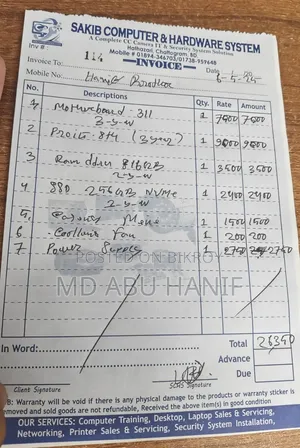 SAKIB COMPUTER & HARDWARE SYSTEM
A Complete CC Camera IT & Security System Solution
Hathazari, Chattogram, BD
Mobile # 01894-346703/01738-959648
Inv # 114
INVOICE
Date
Mobile No:
No. Descriptions Qty. Rate Amount
1 Motherboard 311 1 7500 7500
3-y-w
2 (3 year) 1 9000 9000
3 Ram ddr4 8 16GB 1 3500 3500
2-y-w
4 SSD 256GB NVMe 1 2400 2400
2-y-w
5 1 1500 1500
6 Fan 1 200 200
7 Power Supply 1 2750 2750
POSTED ON BIKROY
MD ABU HANIF
In Word: Total
Advance
Due
Client Signature
SCHS Signature
NB: Warranty will be void if there is any physical damage to the products or warranty sticker is
removed and sold goods are not refundable, Received the above item(s) in good condition
OUR SERVICES: Computer Training, Desktop, Laptop Sales & Servicing,
Networking, Printer Sales & Servicing, Security System Installation,